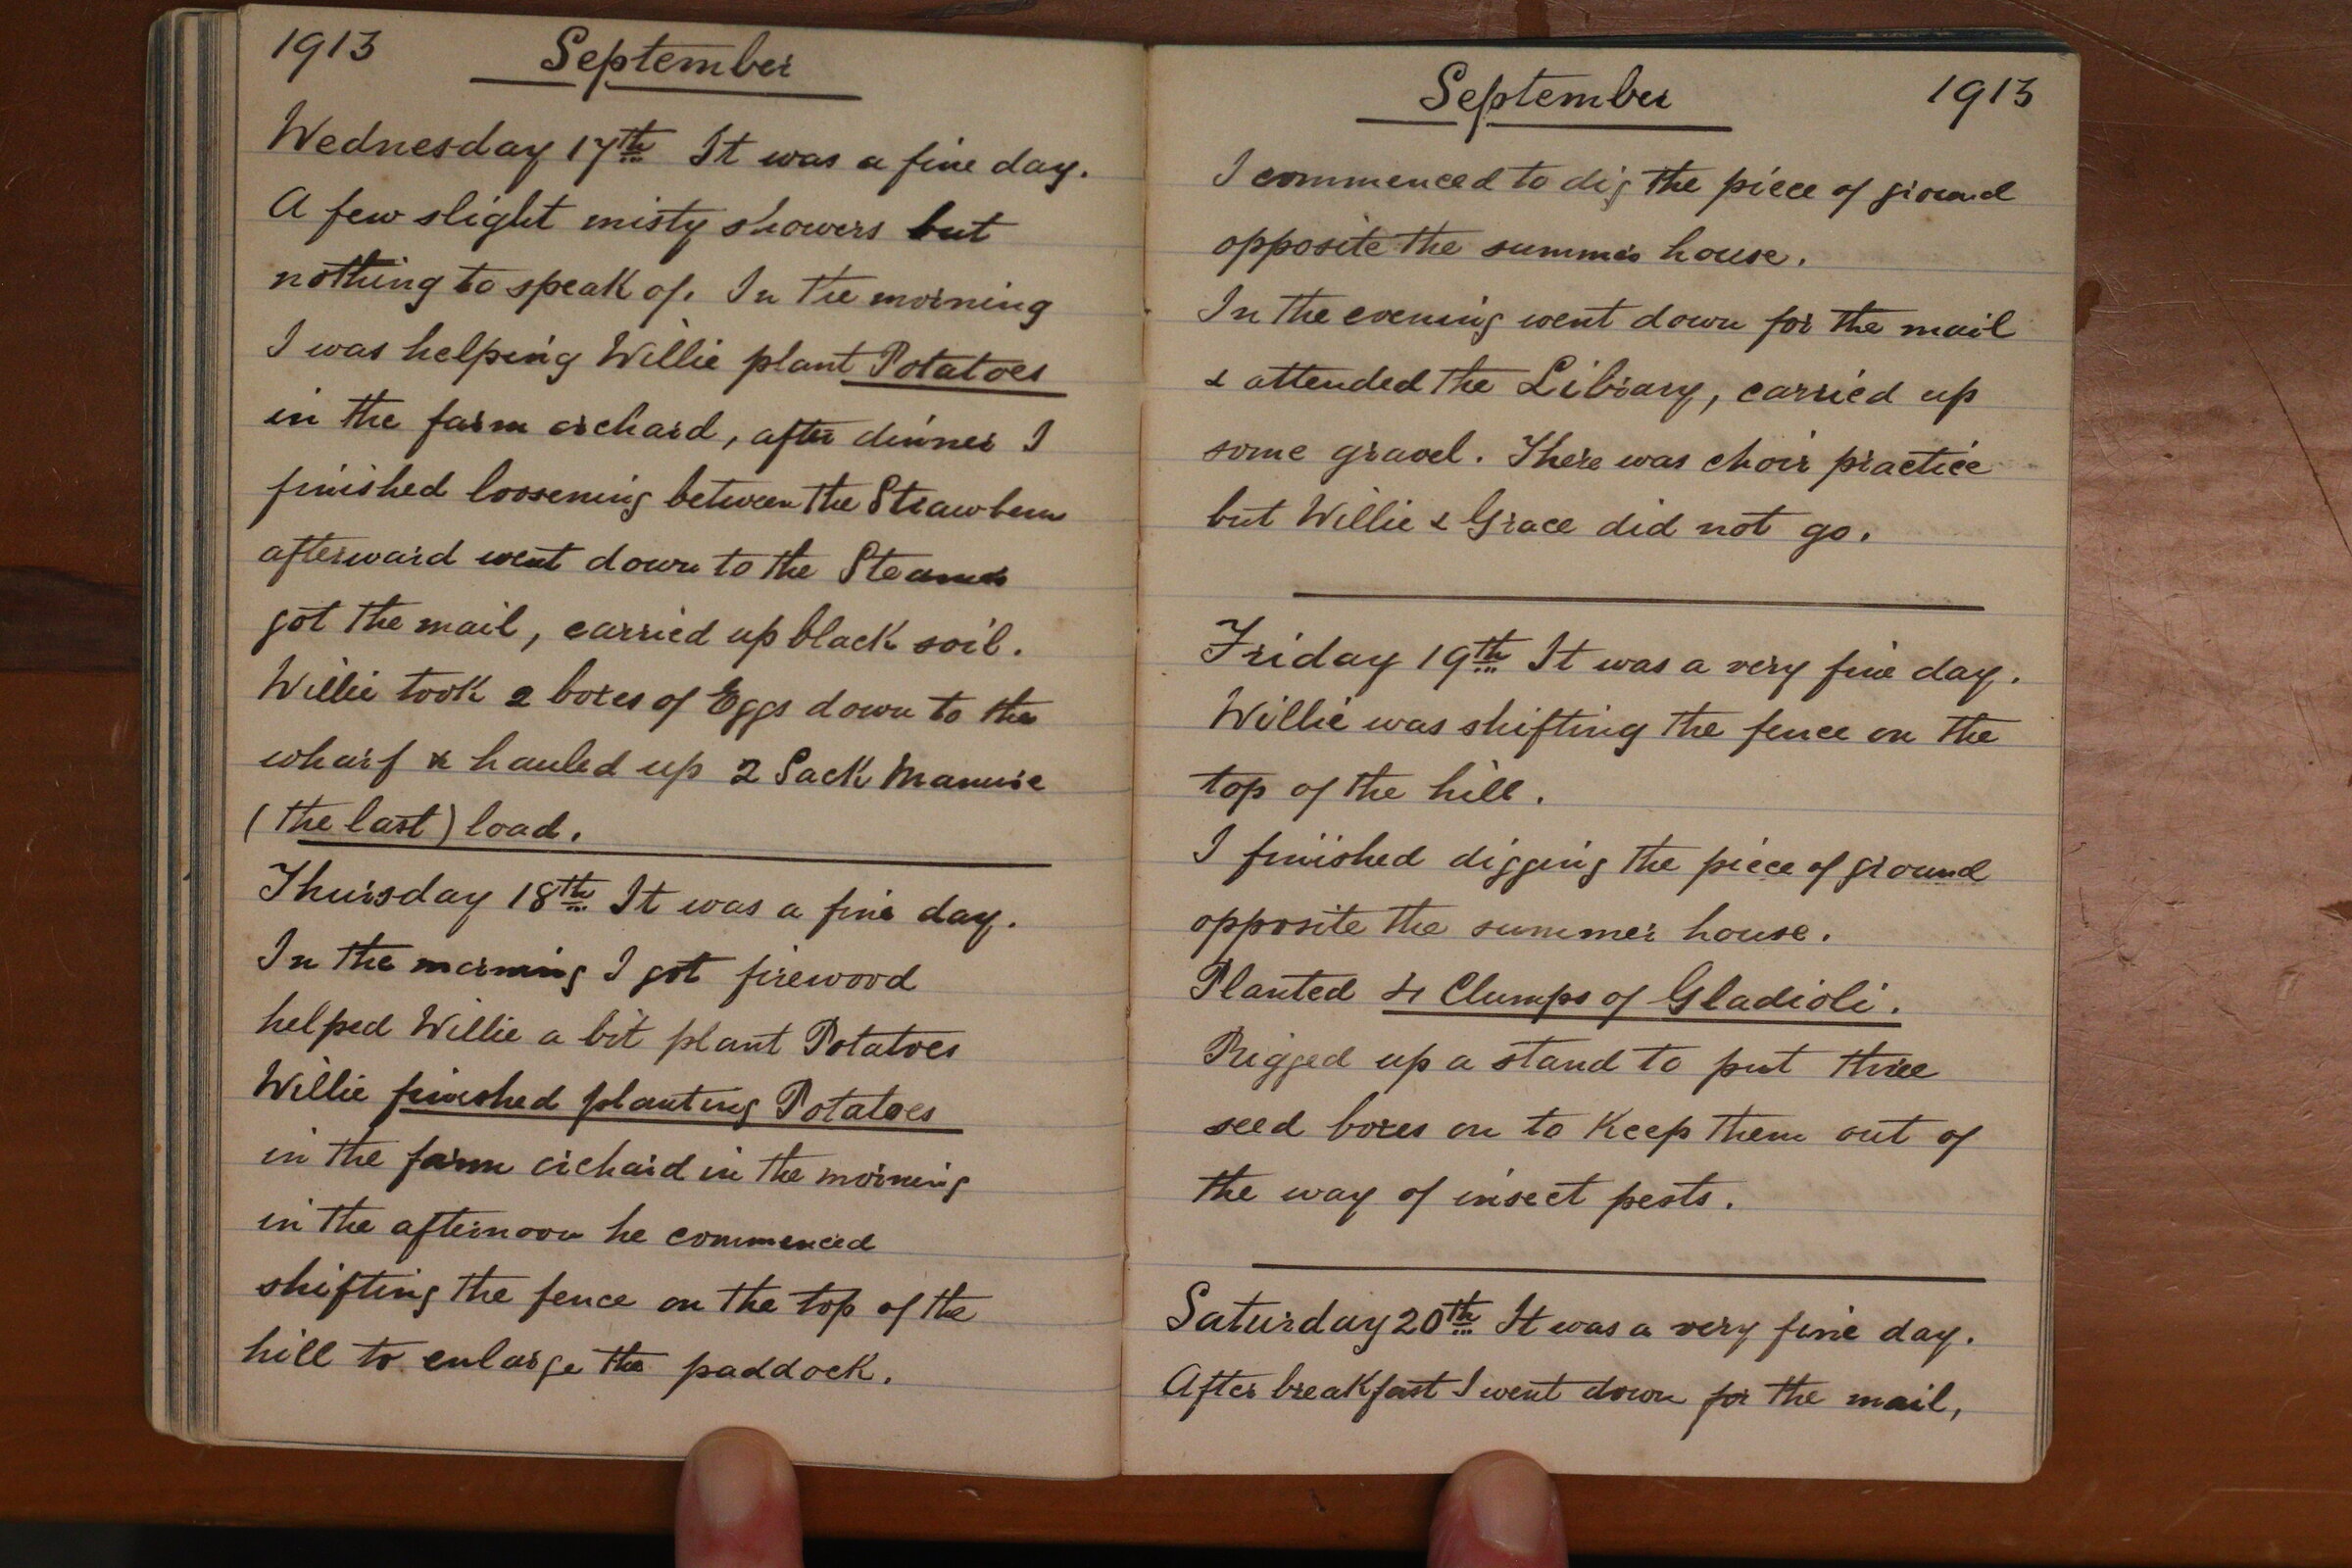 1913 September
Wednesday 17th It was a fine day.
A few slight misty showers but
nothing to speak of. In the morning
I was helping Willie plant Potatoes
in the farm orchard, after dinner I
finished loosening between the
afterward went down to the Steamer
got the mail, carried up black soil.
Willie took 2 boxes of Eggs down to the
wharf & hauled up 2 Sack Manure
(the last) load.
Thursday 18th It was a fine day.
In the morning I got firewood
helped Willie a bit plant Potatoes
Willie finished planting Potatoes
in the farm orchard in the morning
in the afternoon he commenced
shifting the fence on the top of the
hill to enlarge the paddock.
September 1913
I commenced to dig the piece of ground
opposite the summer house.
In the evening went down for the mail
& attended the Library, carried up
some gravel. There was choir practice
but Willie & Grace did not go.
Friday 19th It was a very fine day.
Willie was shifting the fence on the
top of the hill.
I finished digging the piece of ground
opposite the summer house.
Planted 4 Clumps of Gladioli.
Rigged up a stand to put three
seed boxes on to Keep them out of
the way of insect pests.
Saturday 20th It was a very fine day.
After breakfast I went down for the mail,